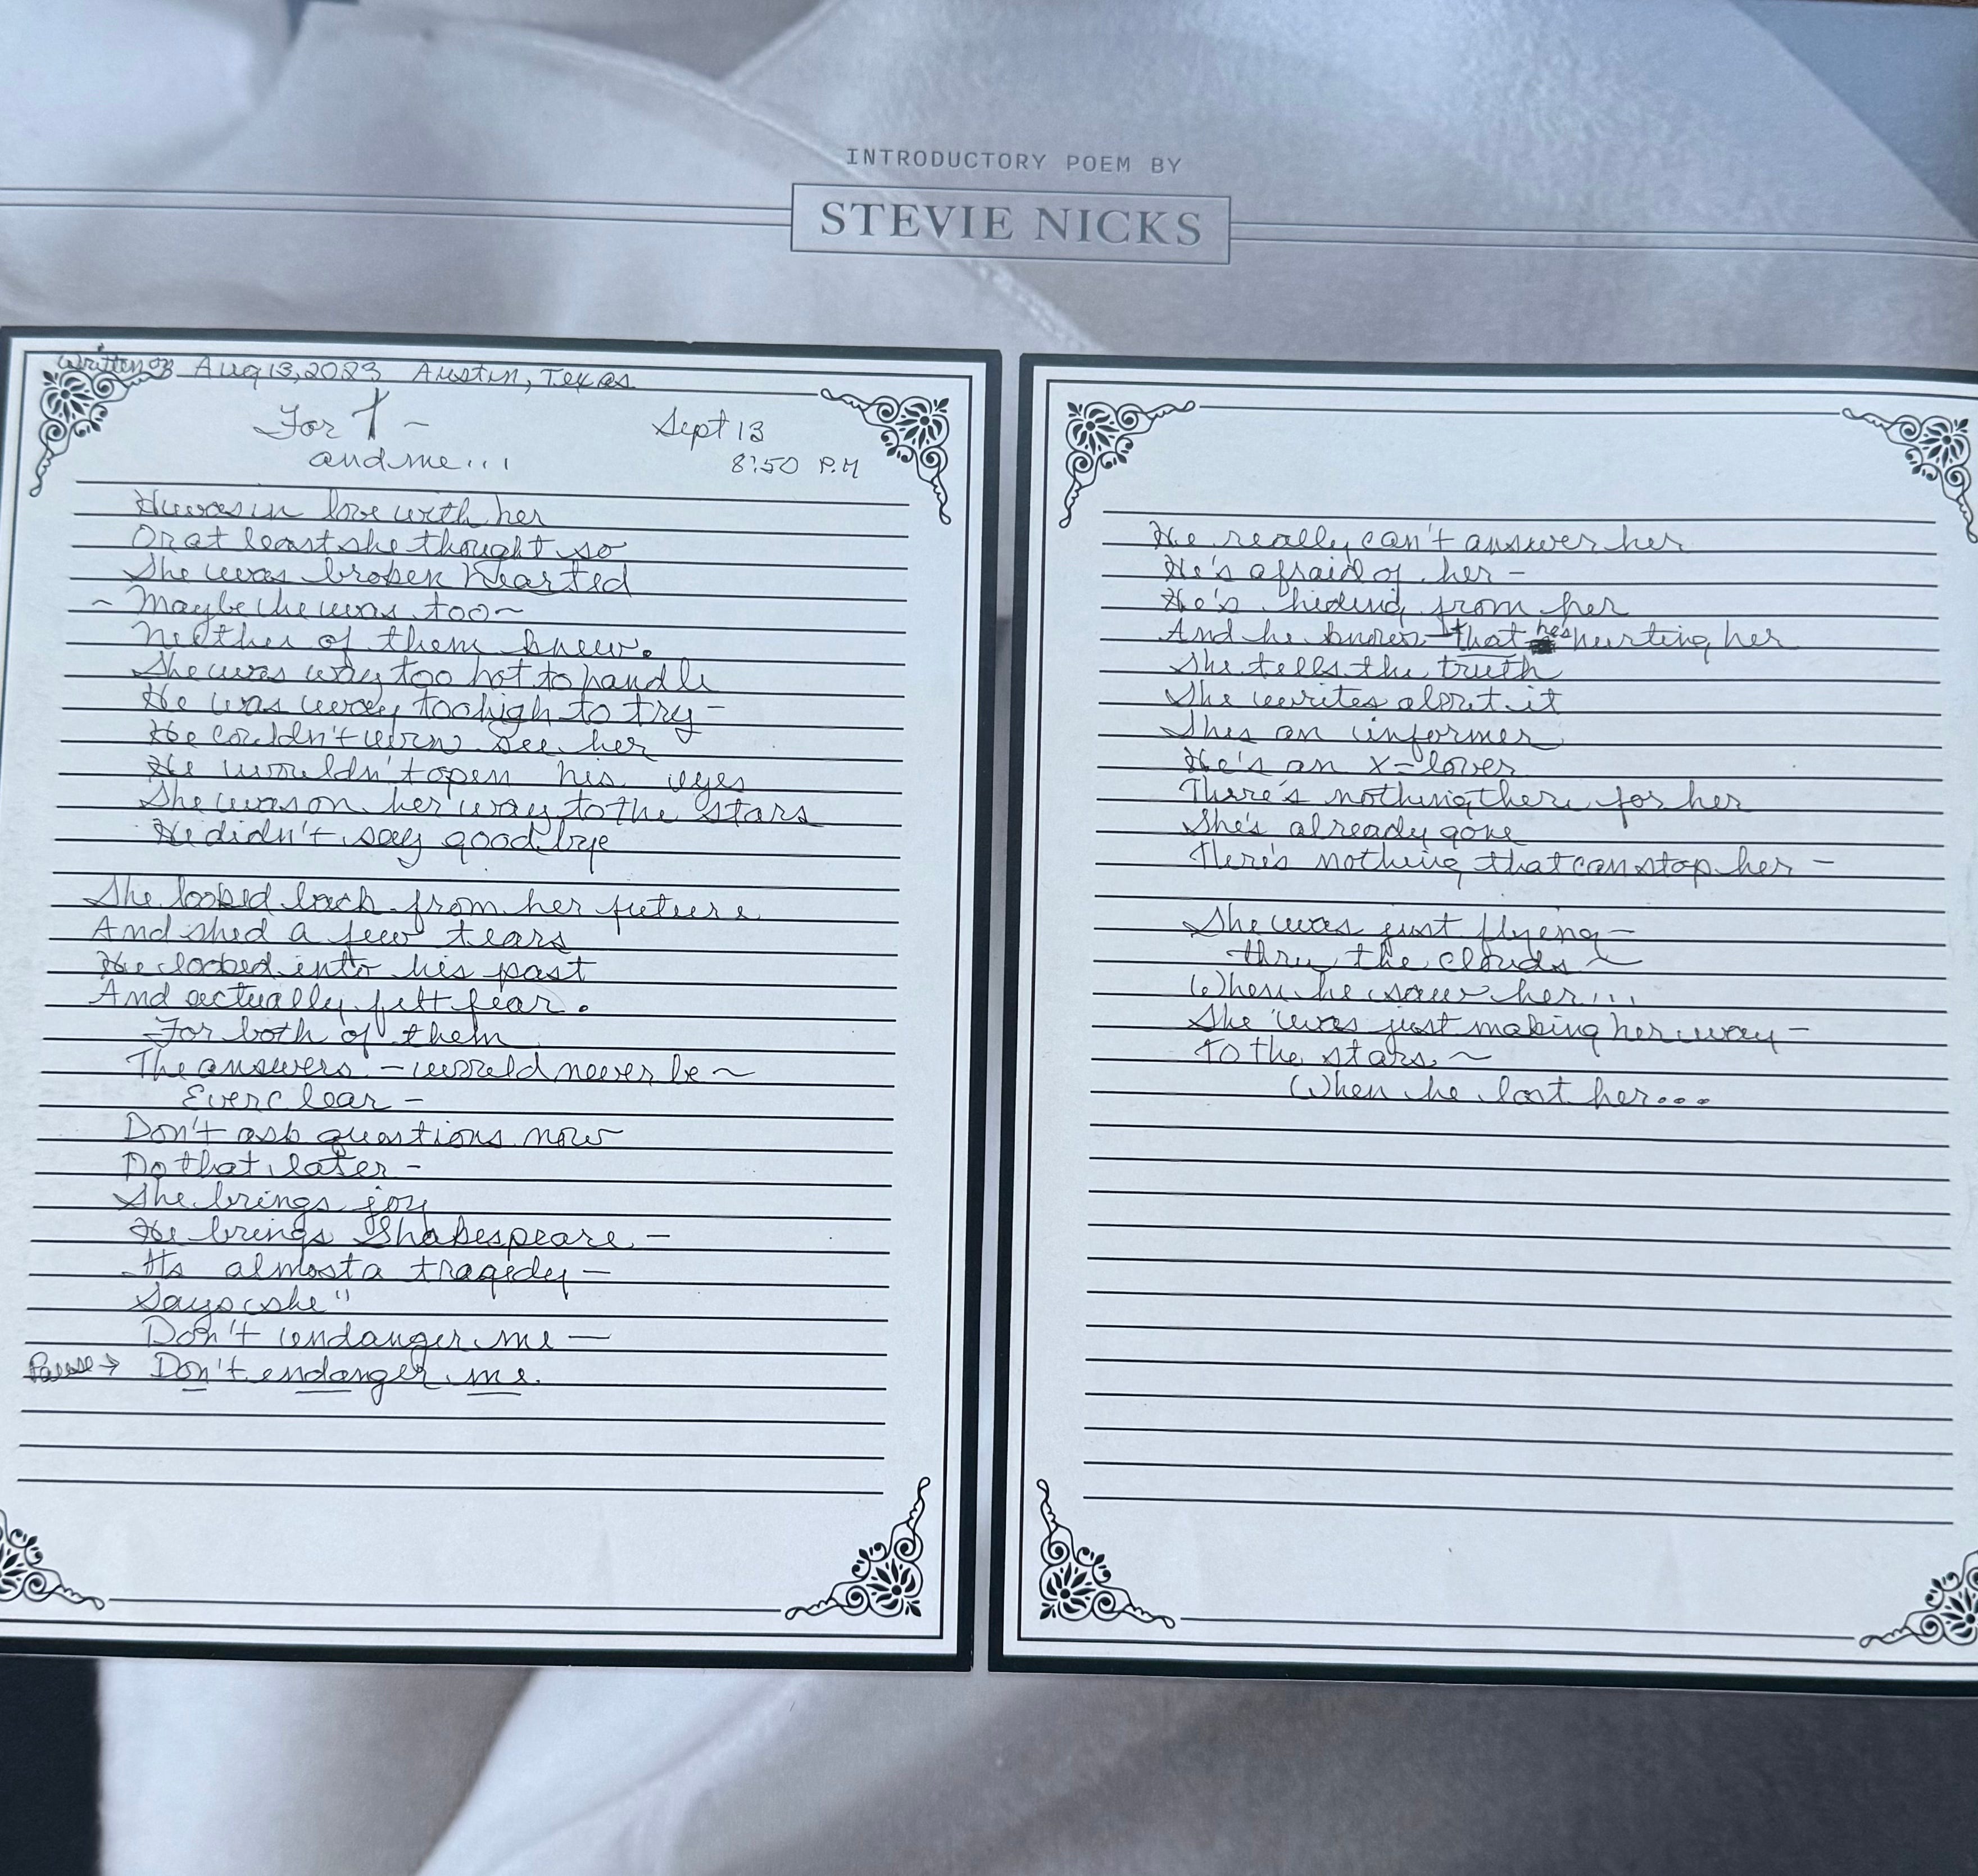 INTRODUCTORY POEM BY
STEVIE NICKS
Written on Aug 13, 2023 Austin, Texas
For T ~
and me...
Sept 13
8:50 P.M
He was in love with her
Or at least she thought so
She was broken hearted
~ Maybe he was too ~
Neither of them knew.
She was way too hot to handle
He was way too high to try -
He couldn't even see her
He wouldn't open his eyes
She was on her way to the stars
He didn't say good bye
She looked back from her future
And shed a few tears
He looked into his past
And actually felt fear.
For both of them
The answers - would never be ~
Ever clear -
Don't ask questions now
Do that later -
She brings joy
He brings Shakespeare -
Its almost a tragedy -
Says she"
Don't endanger me -
Pause → Don't endanger me.
He really can't answer her
He's afraid of her -
He's hiding from her
And he knows that he's hurting her
She tells the truth
She writes about it
Shes an informer
He's an x-lover
There's nothing there for her
She's already gone
There's nothing that can stop her -
She was just flyeng -
thru the clouds ~
When he saw her...
She was just making her way -
To the stars ~
When he lost her...